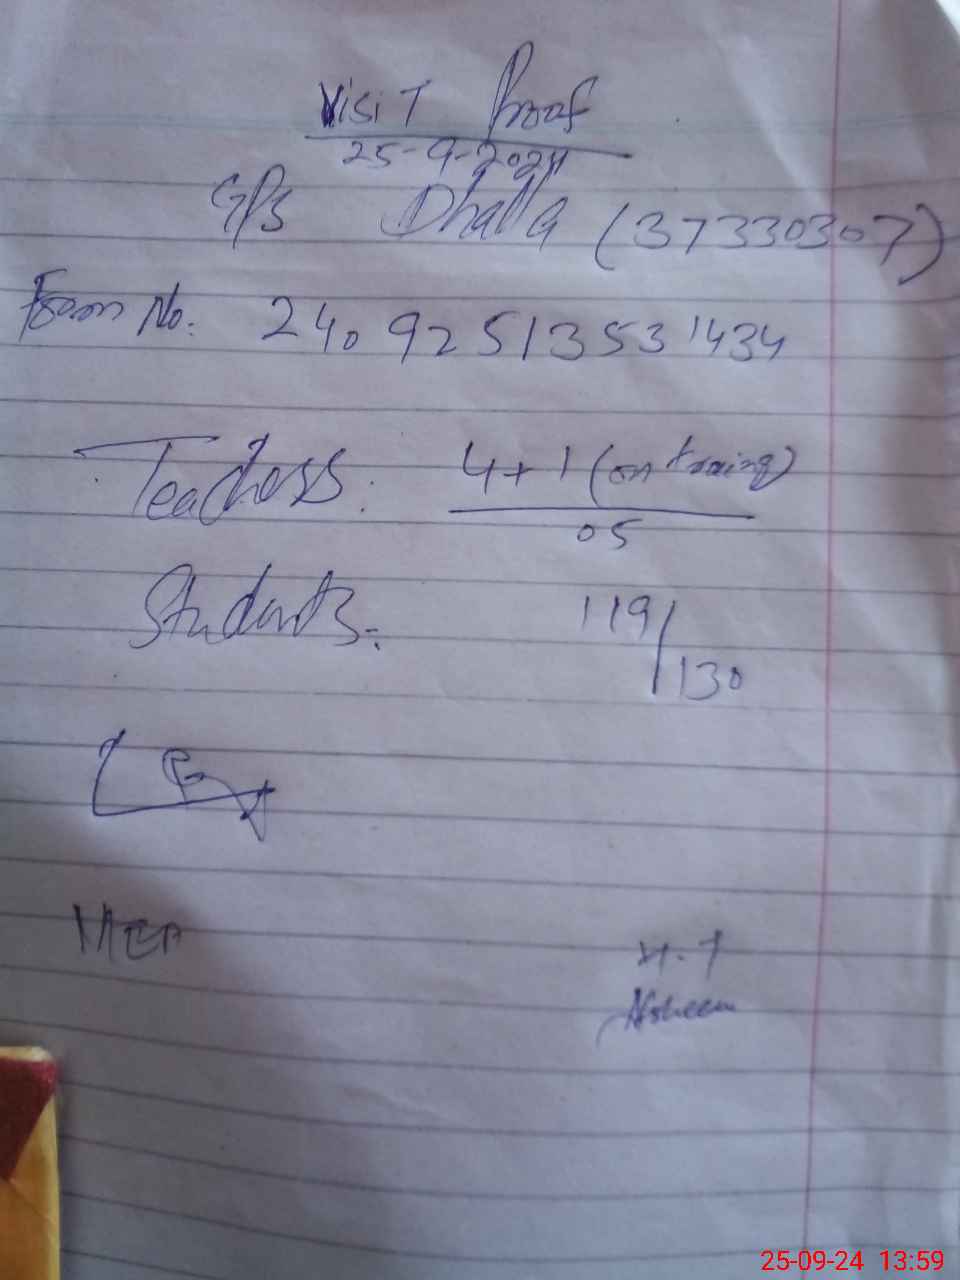 Visit Proof
25-9-2024
GPS Dhalla (37330307)
Form No. 240925135531434
Teachers. 4+1 (on traning)
05
Students. 119/130
MEA
H.T
Afsheen
25-09-24 13:59